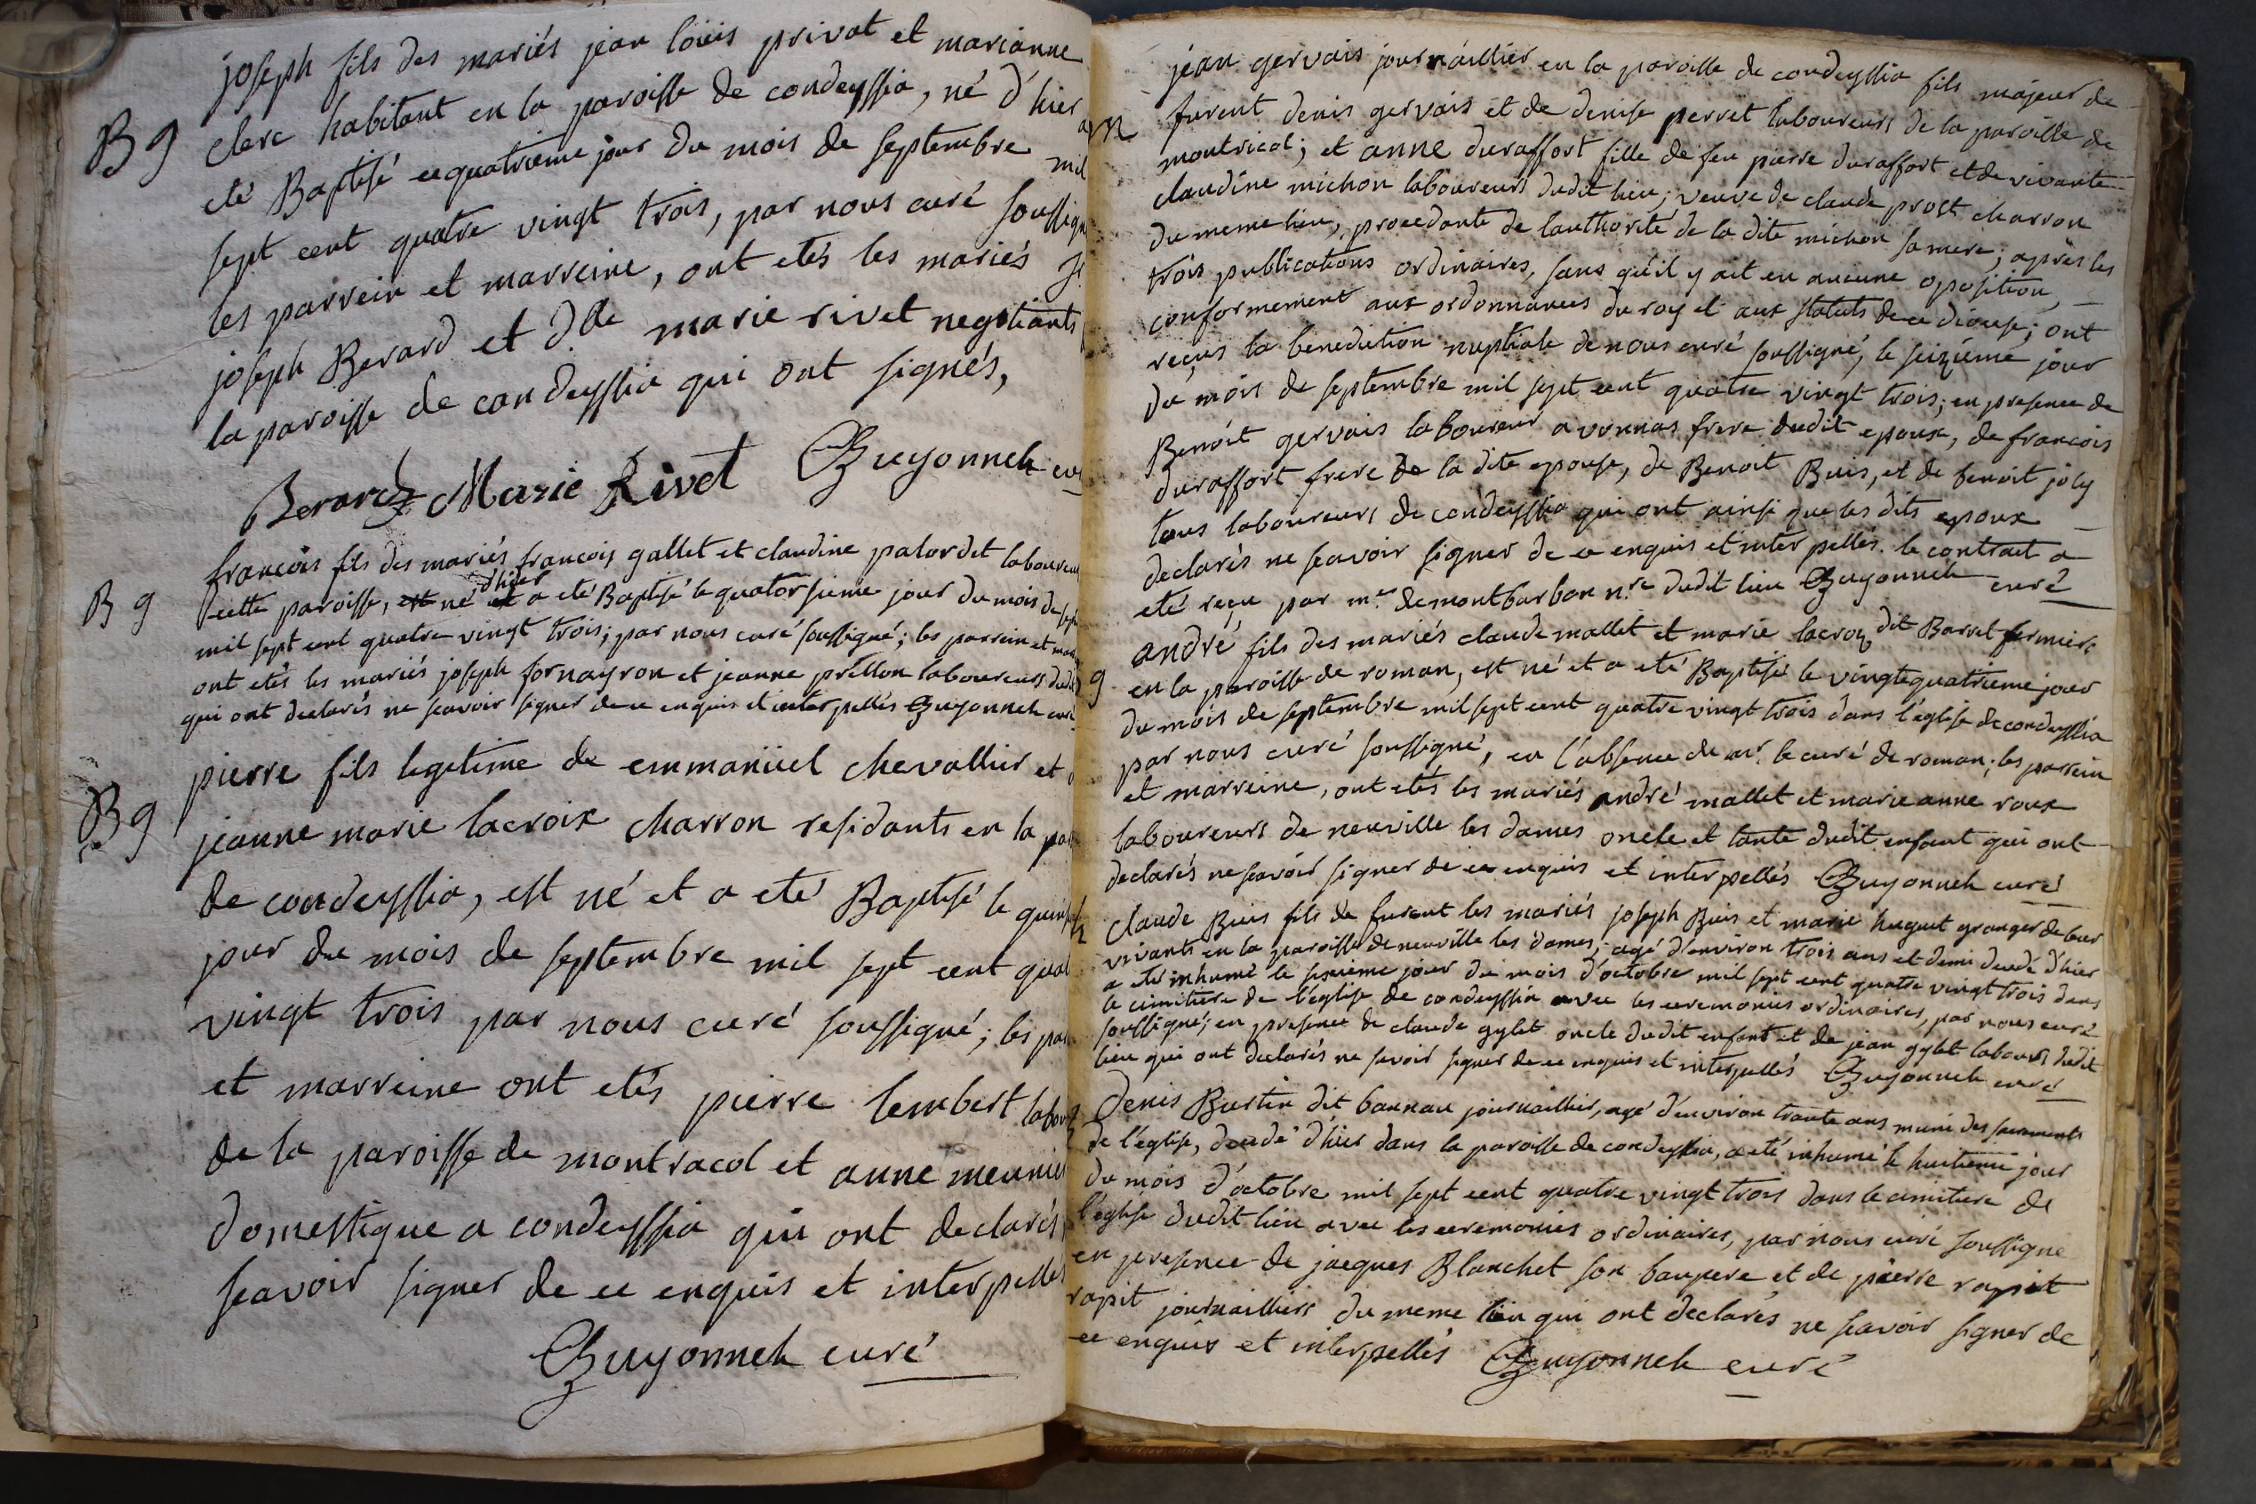 joseph fils des mariés jean loüis privat et marianne
B g
clerc habitant en la paroisse de condeyssia, né d'hier a
eté Baptisé ce quatrieme jour du mois de septembre mil
sept cent quatre vingt trois, par nous curé soussigné
les parrein et marreine, ont etés les mariés
joseph Berard et dlle marie rivet negotiants
la paroisse de condeyssia qui ont signés,
Berard Marie Rivet Guyonneh curé
françois fils des mariés françois gallet et claudine palordet laboureurs
B g
cette paroisse, est né d'hier et a eté Baptisé le quatorsieme jour du mois de sept
mil sept cent quatre vingt trois; par nous curé soussigné; les parrein et
ont etés les mariés joseph fornayron et jeanne prellon laboureurs dudit
qui ont declarés ne scavoir signer de ce enquis et interpellés Guyonneh curé
pierre fils legitime de emmanüel chevallier et
B g
jeanne marie lacroix charron residants en la
de condeyssia, est né et a eté Baptisé le
jour du mois de septembre mil sept cent
vingt trois par nous curé soussigné; les
et marreine ont etés pierre lembert
de la paroisse de montracol et anne meunier
domestique a condeyssia qui ont declarés
scavoir signer de ce enquis et interpellés
Guyonneh curé
jean gervais journaillier en la paroisse de condeyssia fils majeur de
furent denis gervais et de denise perret laboureurs de la paroisse de
montricol; et anne duraffort fille de feu pierre duraffort et de vivante
claudine michon laboureurs dudit lieu; veuve de claude prost charron
du meme lieu, procedante de lauthorité de la dite michon sa mere; après les
trois publications ordinaires, sans qu'il y ait eu aucune oposition,
conformement aux ordonnances du roy et aux statuts de ce diocese; ont
reçus la benediction nuptiale de nous curé soussigné, le seizieme jour
du mois de septembre mil sept cent quatre vingt trois; en presence de
Benoit gervais laboureur a vonnas frere dudit epoux, de francois
duraffort frere de la dite epouse, de Benoit Buis, et de benoit joly
tous laboureurs de condeyssia qui ont ainsi que les dits epoux
declarés ne scavoir signer de ce enquis et interpellés. le contract a
eté reçu par me. demontbarbon nre dudit lieu Guyonneh curé
andré fils des mariés claude mallet et marie lacroix dit Barret fermiers
g
en la paroisse de roman, est né et a eté Baptisé le vingtequatrieme jour
du mois de septembre mil sept cent quatre vingt trois dans l'eglise de condeyssia
par nous curé soussigné, en l'absence de mr. le curé de roman; les parrein
et marreine, ont etés les mariés andré mallet et marie anne roux
laboureurs de neuville les dames oncle et tante dudit enfant qui ont
declarés ne scavoir signer de ce enquis et interpellés Guyonneh curé
claude Buis fils de furent les mariés joseph Buis et marie huguet granger de leur
vivants en la paroisse de neuville les dames, agé d'environ trois ans et demi decedé d'hier
a eté inhumé le sixieme jour du mois d'octobre mil sept cent quatre vingt trois dans
le cimitiere de l'eglise de condeyssia avec les ceremonies ordinaires, par nous curé
soussigné; en presence de claude gylet oncle dudit enfant et de jean gylet labours dudit
lieu qui ont declarés ne savoir signer de ce enquis et interpellés Guyonneh curé
Denis Burtin dit bannau journaillier, agé d'environ trante ans muni des sacrements
de l'eglise, decedé d'hier dans la paroisse de condeyssia, a eté inhumé le huitieme jour
du mois d'octobre mil sept cent quatre vingt trois dans le cimitiere de
l'eglise dudit lieu avec les ceremonies ordinaires, par nous curé soussigné
en presence de jacques Blanchet son baupere et de pierre rapit
rapit journailliers du meme lieu qui ont declarés ne scavoir signer de
ce enquis et interpellés Guyonneh curé